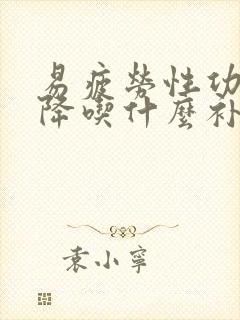 易疲劳性功
降喫什麼补
袁小寧